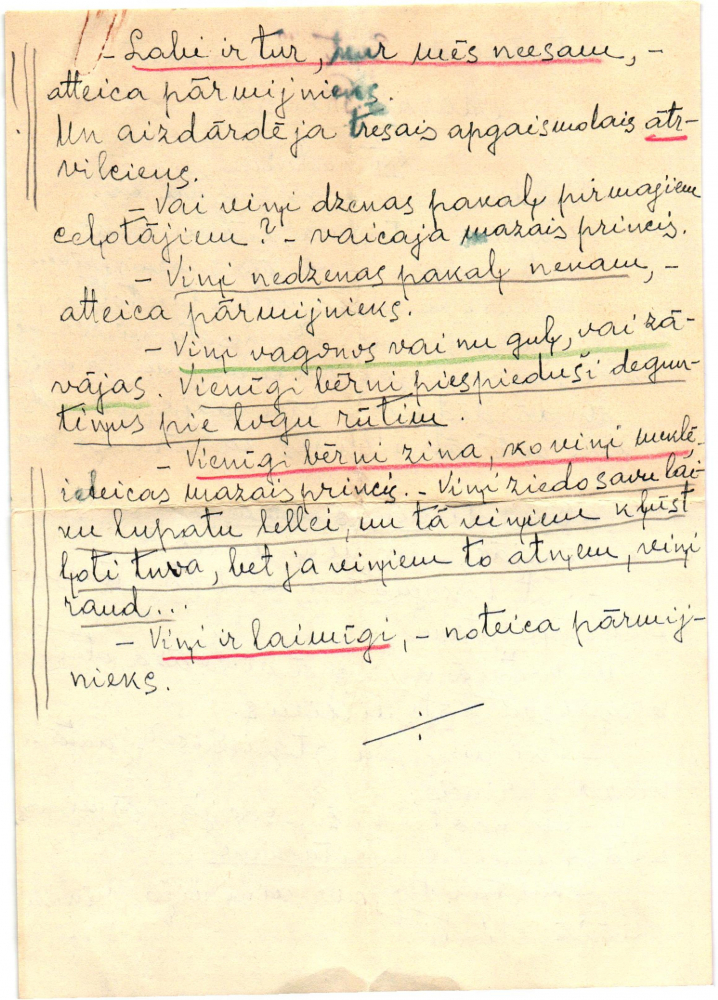 – Labi ir tur, kur mēs neesam, –
atteica pārmijnieks.
Un aizdārdēja trešais apgaismotais ātr-
vilciens.
– Vai viņi dzenas pakaļ pirmajiem
ceļotājiem? – vaicāja mazais princis.
– Viņi nedzenas pakaļ nevam, –
atteica pārmijnieks.
– Viņi vagonos vai nu guļ, vai žā-
vājas. Vienīgi bērni piespieduši degun-
tiņus pie logu rūtīm.
– Vienīgi bērni zina, ko viņi meklē,
ieteicas mazais princis. – Viņi ziedo savu lai-
ku lupatu lellei, un tā viņiem kļūst
ļoti tuva, bet ja viņiem to atņem, viņi
raud...
– Viņi ir laimīgi, – noteica pārmij-
nieks.